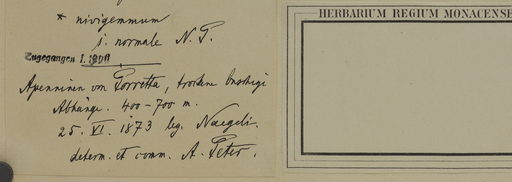 * nivigemmum
f. normale N. P.
Zugegangen 1.
Apenninen von Porretta, trockene buschige
Abhänge. 400-700 m.
25. VI. 1873 leg. Naegeli.
determ. et comm. A. Peter.
HERBARIUM REGIUM MONACENSE